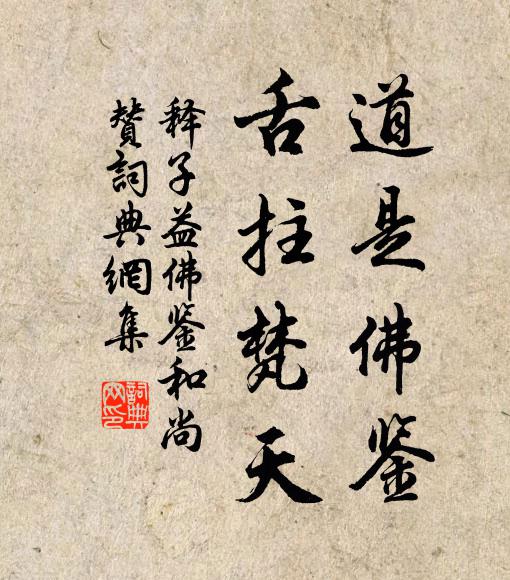 道是佛鉴
舌拄梵天
释子益佛鉴和尚
赞詞典網集
詞典网印